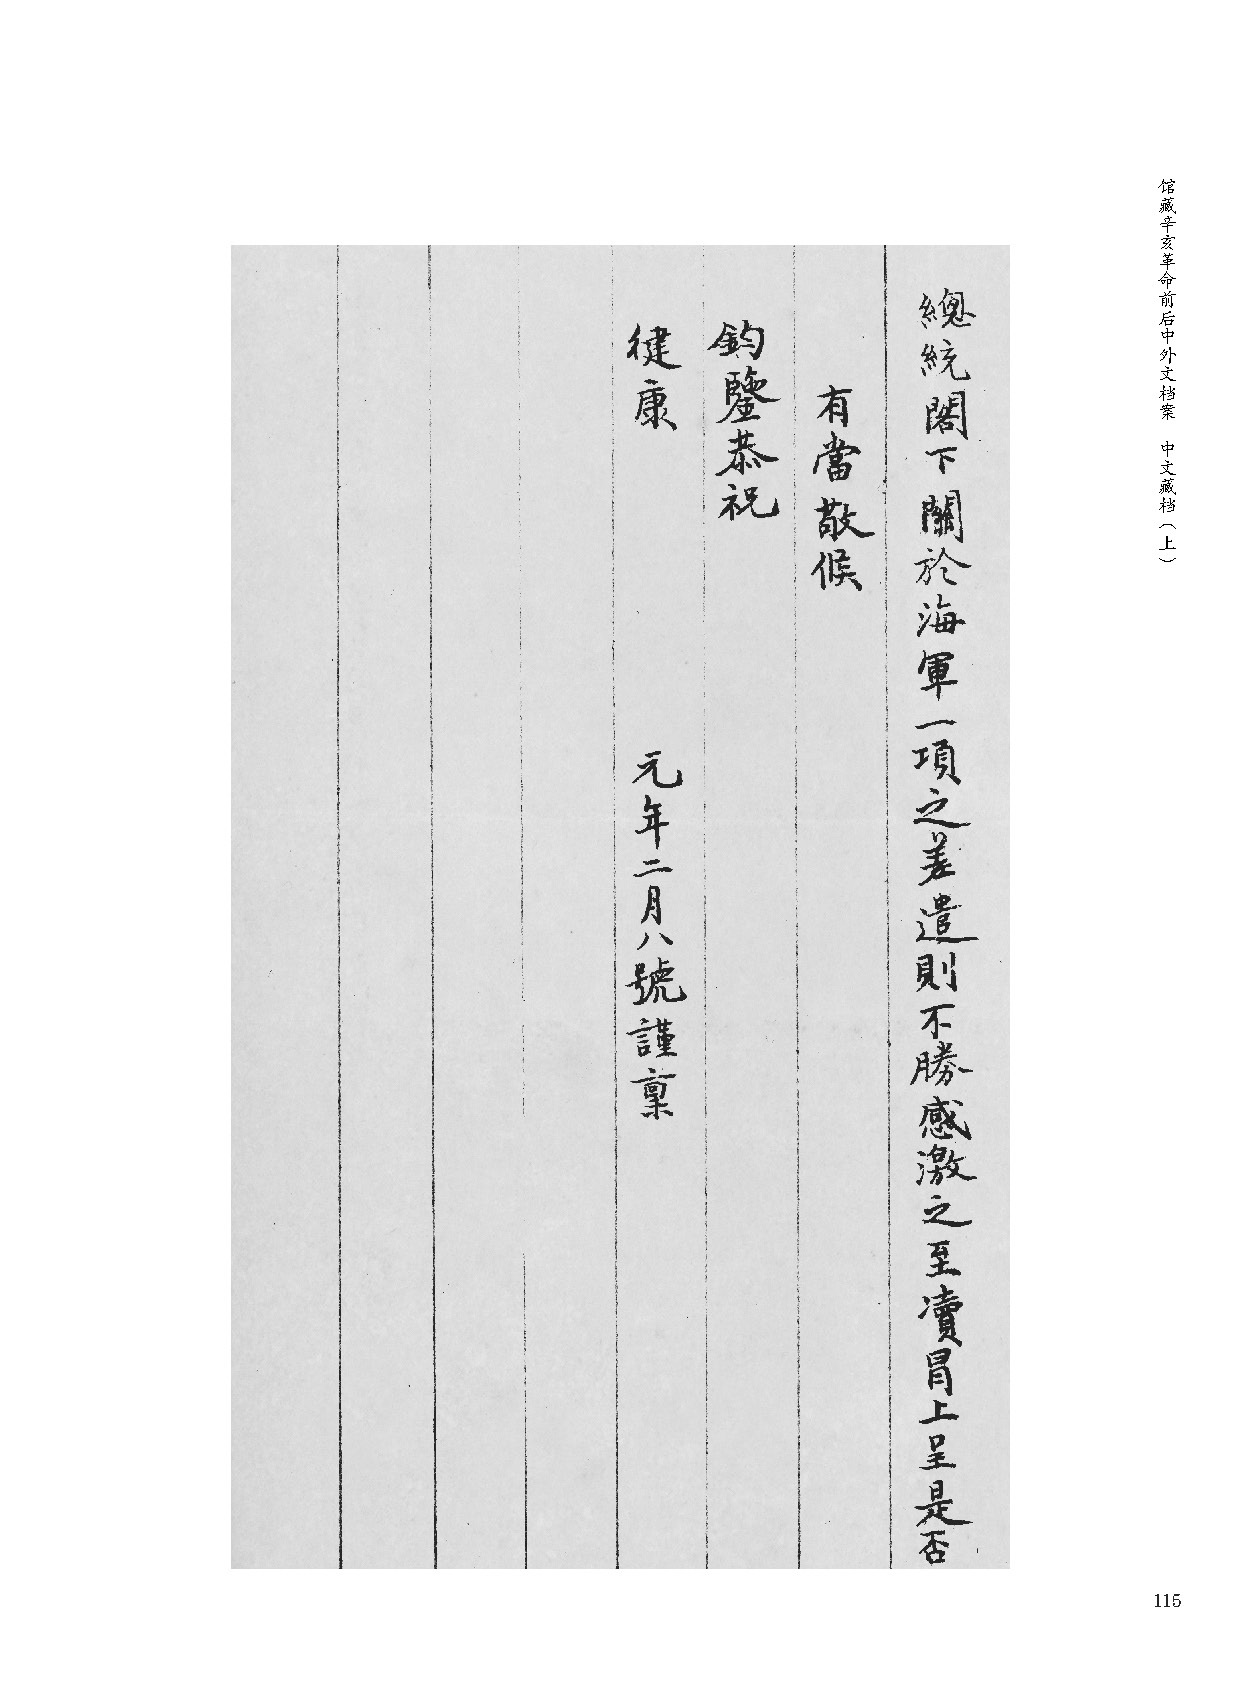 總統閣下關於海軍一項之差遣則不勝感激之至瀆冒上呈是否
有當敬候
鈞鑒恭祝
健康
元年二月八號謹稟
馆藏辛亥革命前后中外文档案 中文藏档（上）
115